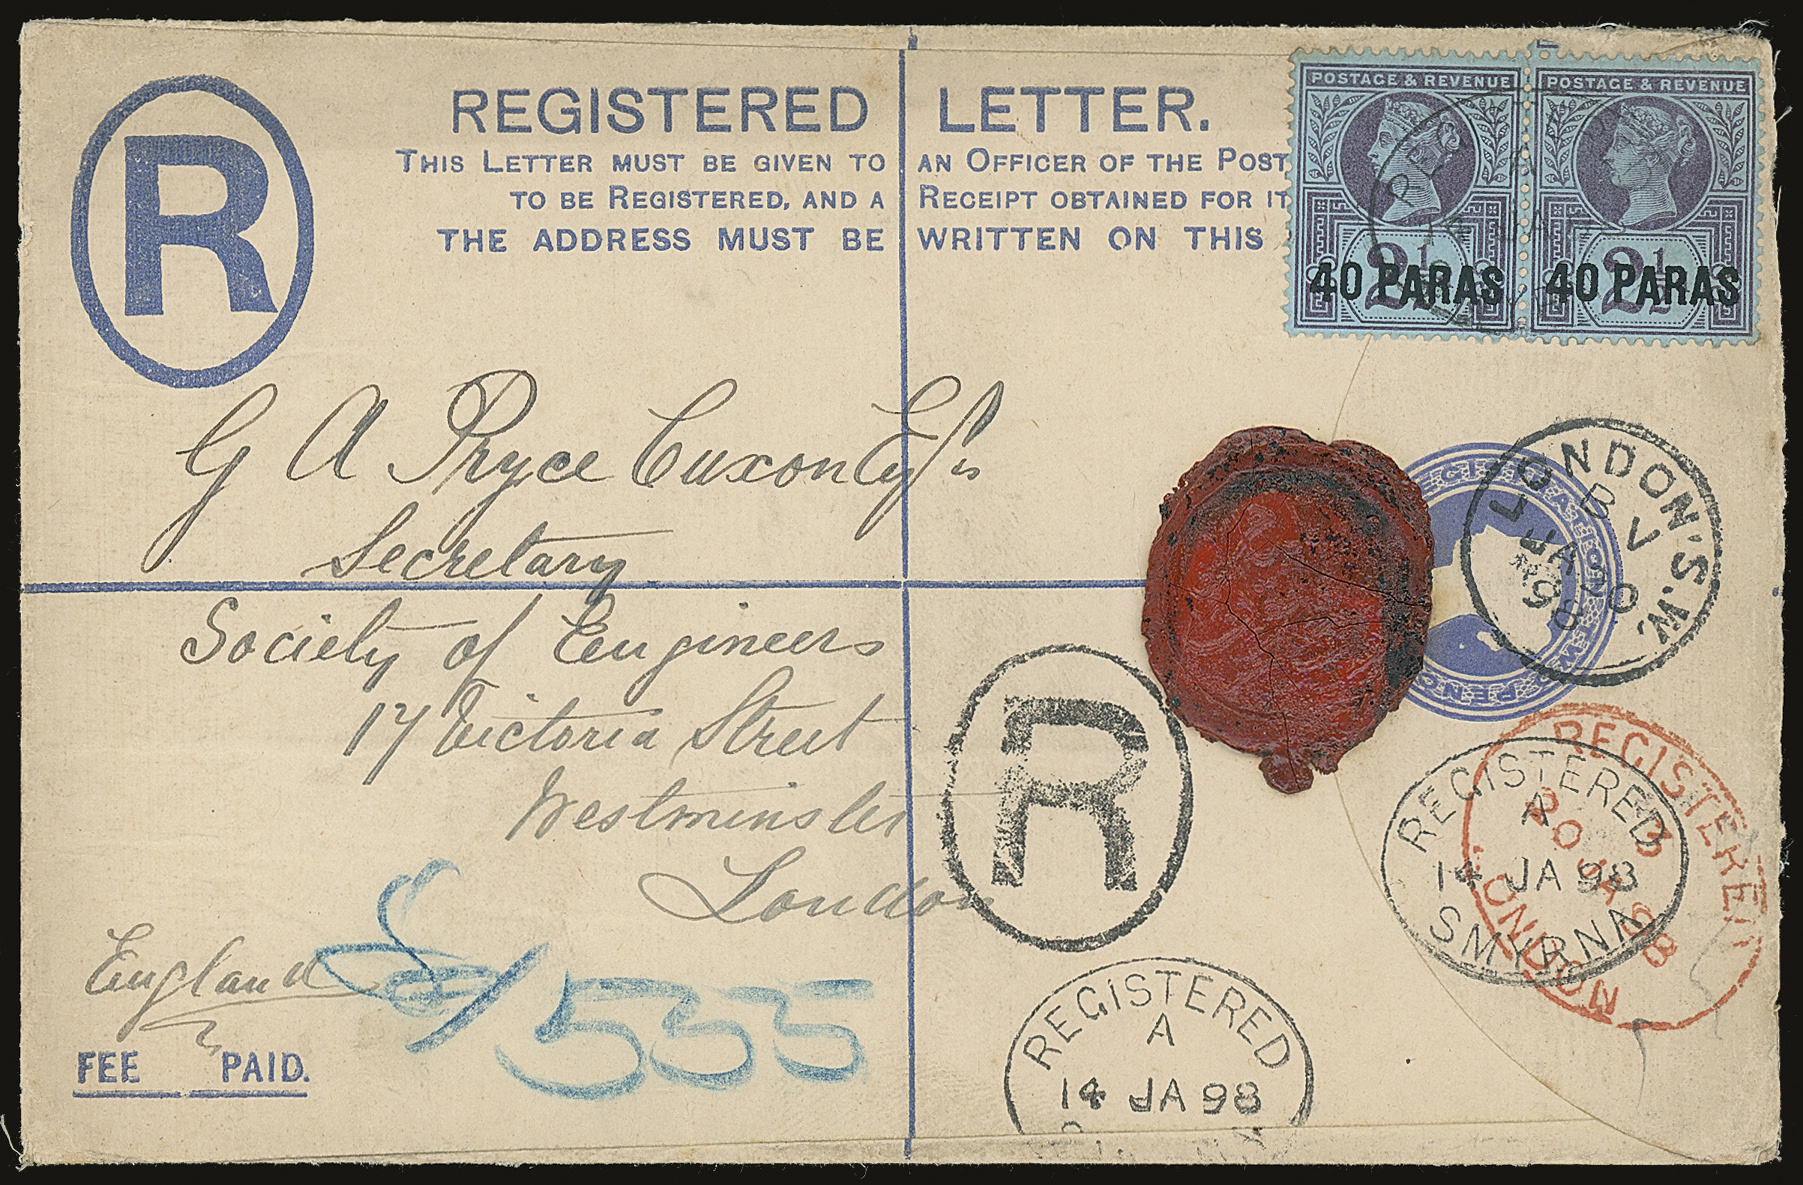 R
REGISTERED LETTER.
THIS LETTER MUST BE GIVEN TO AN OFFICER OF THE POST
TO BE REGISTERED, AND A RECEIPT OBTAINED FOR IT
THE ADDRESS MUST BE WRITTEN ON THIS
POSTAGE & REVENUE
2½
40 PARAS
POSTAGE & REVENUE
2½
40 PARAS
G A Pryce Cuxon Esqre
Secretary
Society of Engineers
17 Victoria Street
Westminster
London
England
FEE PAID.
555
R
LONDON.S.W.
B V
JA 20
98
REGISTERED
A
14 JA 98
SMYRNA
REGISTERED
20 JA 98
LONDON
REGISTERED
A
14 JA 98